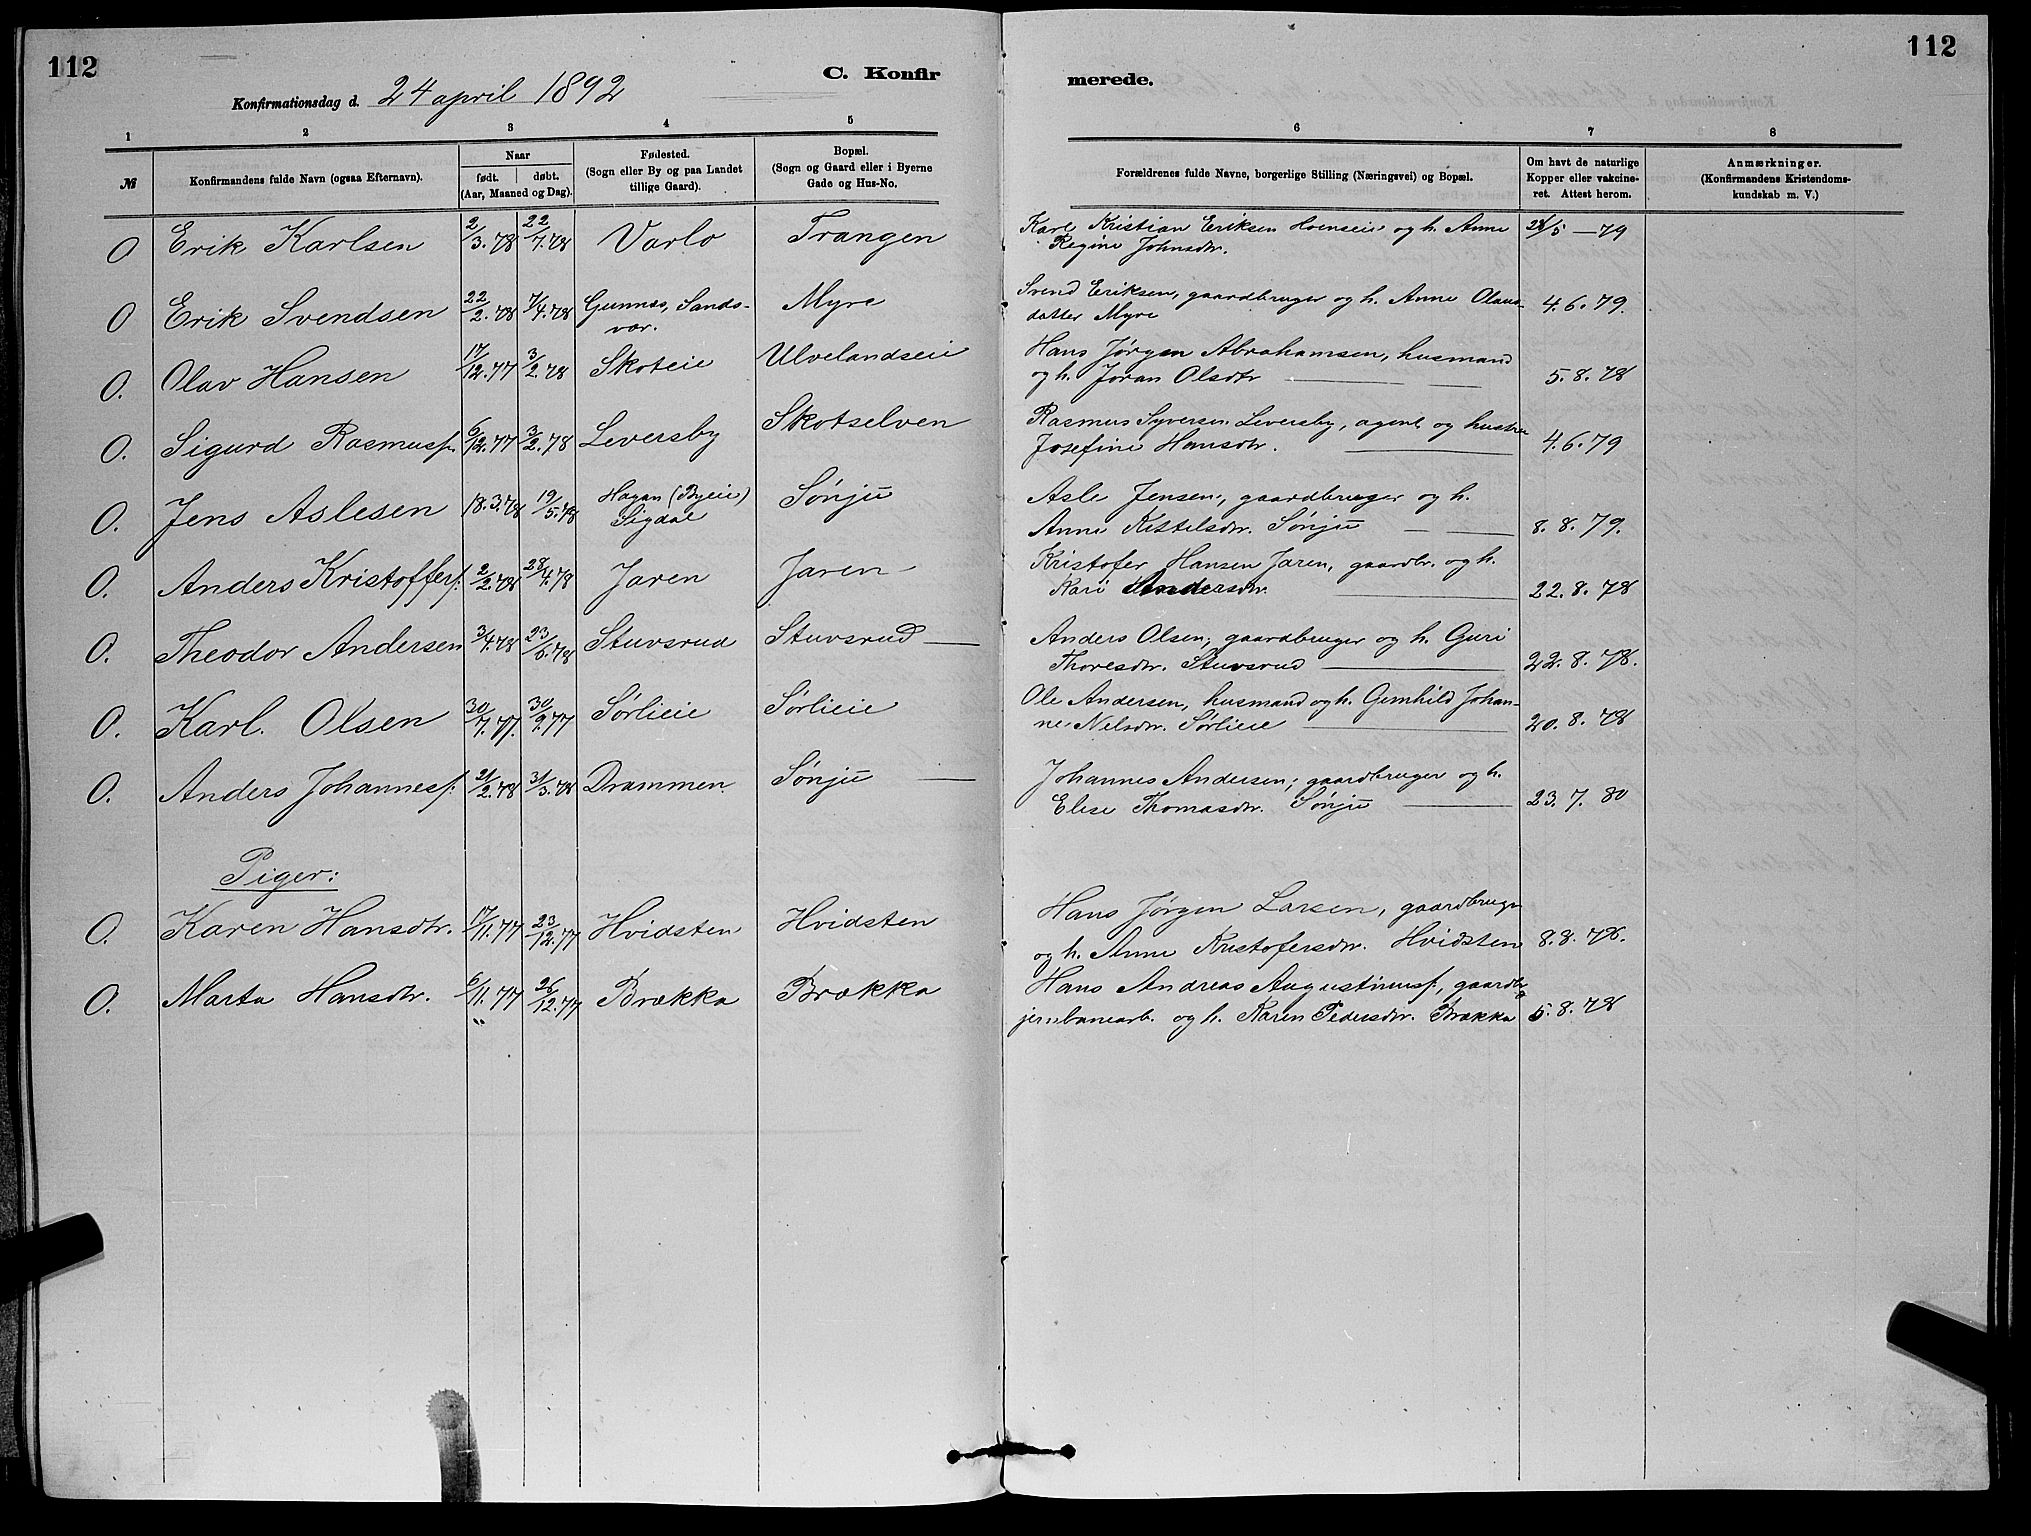 112
112
C. Konfir
merede.
Konfirmationsdag d. 24 april 1892
1 2 3 4 5
6 7 8
№
Konfirmandens fulde Navn (ogsaa Efternavn).
Naar
født. døbt.
(Aar, Maaned og Dag).
Fødested.
(Sogn eller By og paa Landet
tillige Gaard).
Bopæl.
(Sogn og Gaard eller i Byerne
Gade og Hus-No.
Forældrenes fulde Navne, borgerlige Stilling (Næringsvei) og Bopæl.
Om havt de naturlige
Kopper eller vakcine-
ret. Attest herom.
Anmærkninger.
(Konfirmandens Kristendoms-
kundskab m. V.)
0 Erik Karlsen 2/3.78 22/7.78 Varlo Trangen Karl Kristian Eriksen og h. Anne 28/5 — 79
Regine Johnsdtr.
0 Erik Svendsen 22/2.78 7/4.78 Gunnæs, Sands- Myre Svend Eriksen, gaardbruger og h. Anne Olaus- 4.6.79.
vær. datter Myre
0. Olav Hansen 17/12.77 3/2.78 Skoteie Ulvelandseie Hans Jørgen Abrahamsen, husmand
og h. Jøran Olsdtr 5.8.78
0. Sigurd Rasmuss. 6/12.77 3/2.78 Leversby Skotselven Rasmus Syversen Leversby, agent og hustru
Josefine Hansdtr. 4.6.79
0. Jens Aslesen 18.3.78 19/5.78 Hagan (Byeie) Sønju Asle Jensen, gaardbruger og h.
Sigdal Anne Kittelsdtr. Sønju 8.8.79.
0. Anders Kristoffers. 2/2.78 28/4.78 Jaren Jaren Kristofer Hansen Jaren, gaardbr. og h.
Kari Andersdtr. 22.8.78
0. Theodor Andersen 3/4.78 23/6.78 Stuvsrud Stuvsrud Anders Olsen, gaardbruger og h. Guri
Thoresdtr. Stuvsrud 22.8.78.
0. Karl Olsen 30/7.77. 30/9.77 Sørlieie Sørlieie Ole Andersen, husmand og h. Gunhild Johan-
ne Nelsdtr. Sørlieie 20.8.78
0. Anders Johanness. 21/2.78 31/3.78 Drammen Sønju Johannes Andersen, gaardbruger og h.
Elise Thomasdtr. Sønju 23.7.80
Piger:
0. Karen Hansdtr. 17/11.77 23/12.77 Hvidsten Hvidsten Hans Jørgen Larsen, gaardbruger
og h. Anne Kristofersdtr. Hvidsten 8.8.78.
0. Marta Hansdtr. 6/11.77 26/12.77 Brækka Brække Hans Andreas Augustinuss., gaardbr
jernbanearb. og h. Karen Pedersdtr. Brækka 5.8.78